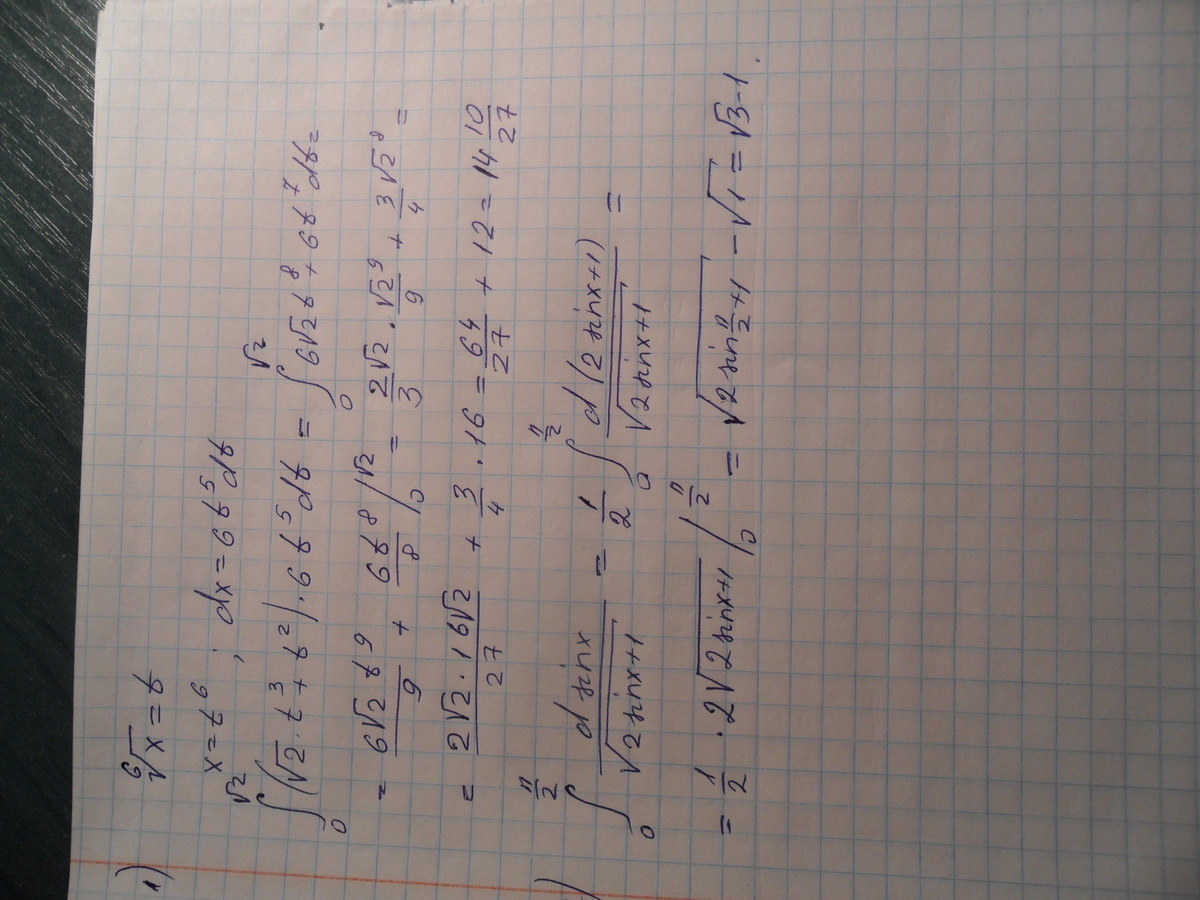 1) ⁶√x = t
x = t⁶ ; dx = 6t⁵dt
∫₀^√2 (√2 · t³ + t²) · 6t⁵dt = ∫₀^√2 6√2t⁸ + 6t⁷dt =
= 6√2t⁹/9 + 6t⁸/8 |₀^√2 = 2√2/3 · √2⁹/9 + 3/4 √2⁸ =
= 2√2 · 16√2/27 + 3/4 · 16 = 64/27 + 12 = 14 10/27
) ∫₀^π/2 d sinx/√(2sinx+1) = 1/2 ∫₀^π/2 d(2sinx+1)/√(2sinx+1) =
= 1/2 · 2√(2sinx+1) |₀^π/2 = √(2sin π/2 +1) - √1 = √3-1.